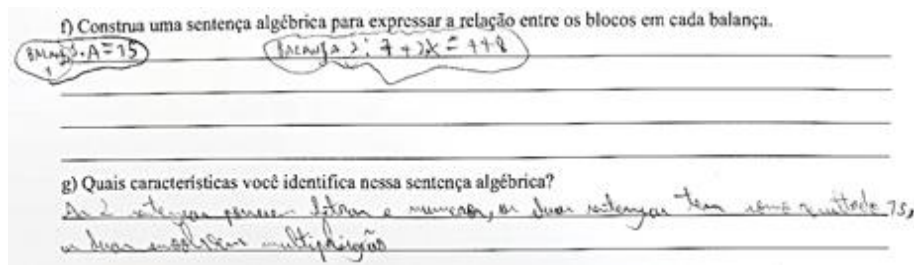 f) Construa uma sentença algébrica para expressar a relação entre os blocos em cada balança.
3·A=15 Balança 2: 7+2x=
g) Quais características você identifica nessa sentença algébrica?
As 2 sentenças possuem letras e numeros, as duas sentenças tem como resultado 15,
as duas envolvem multiplicação